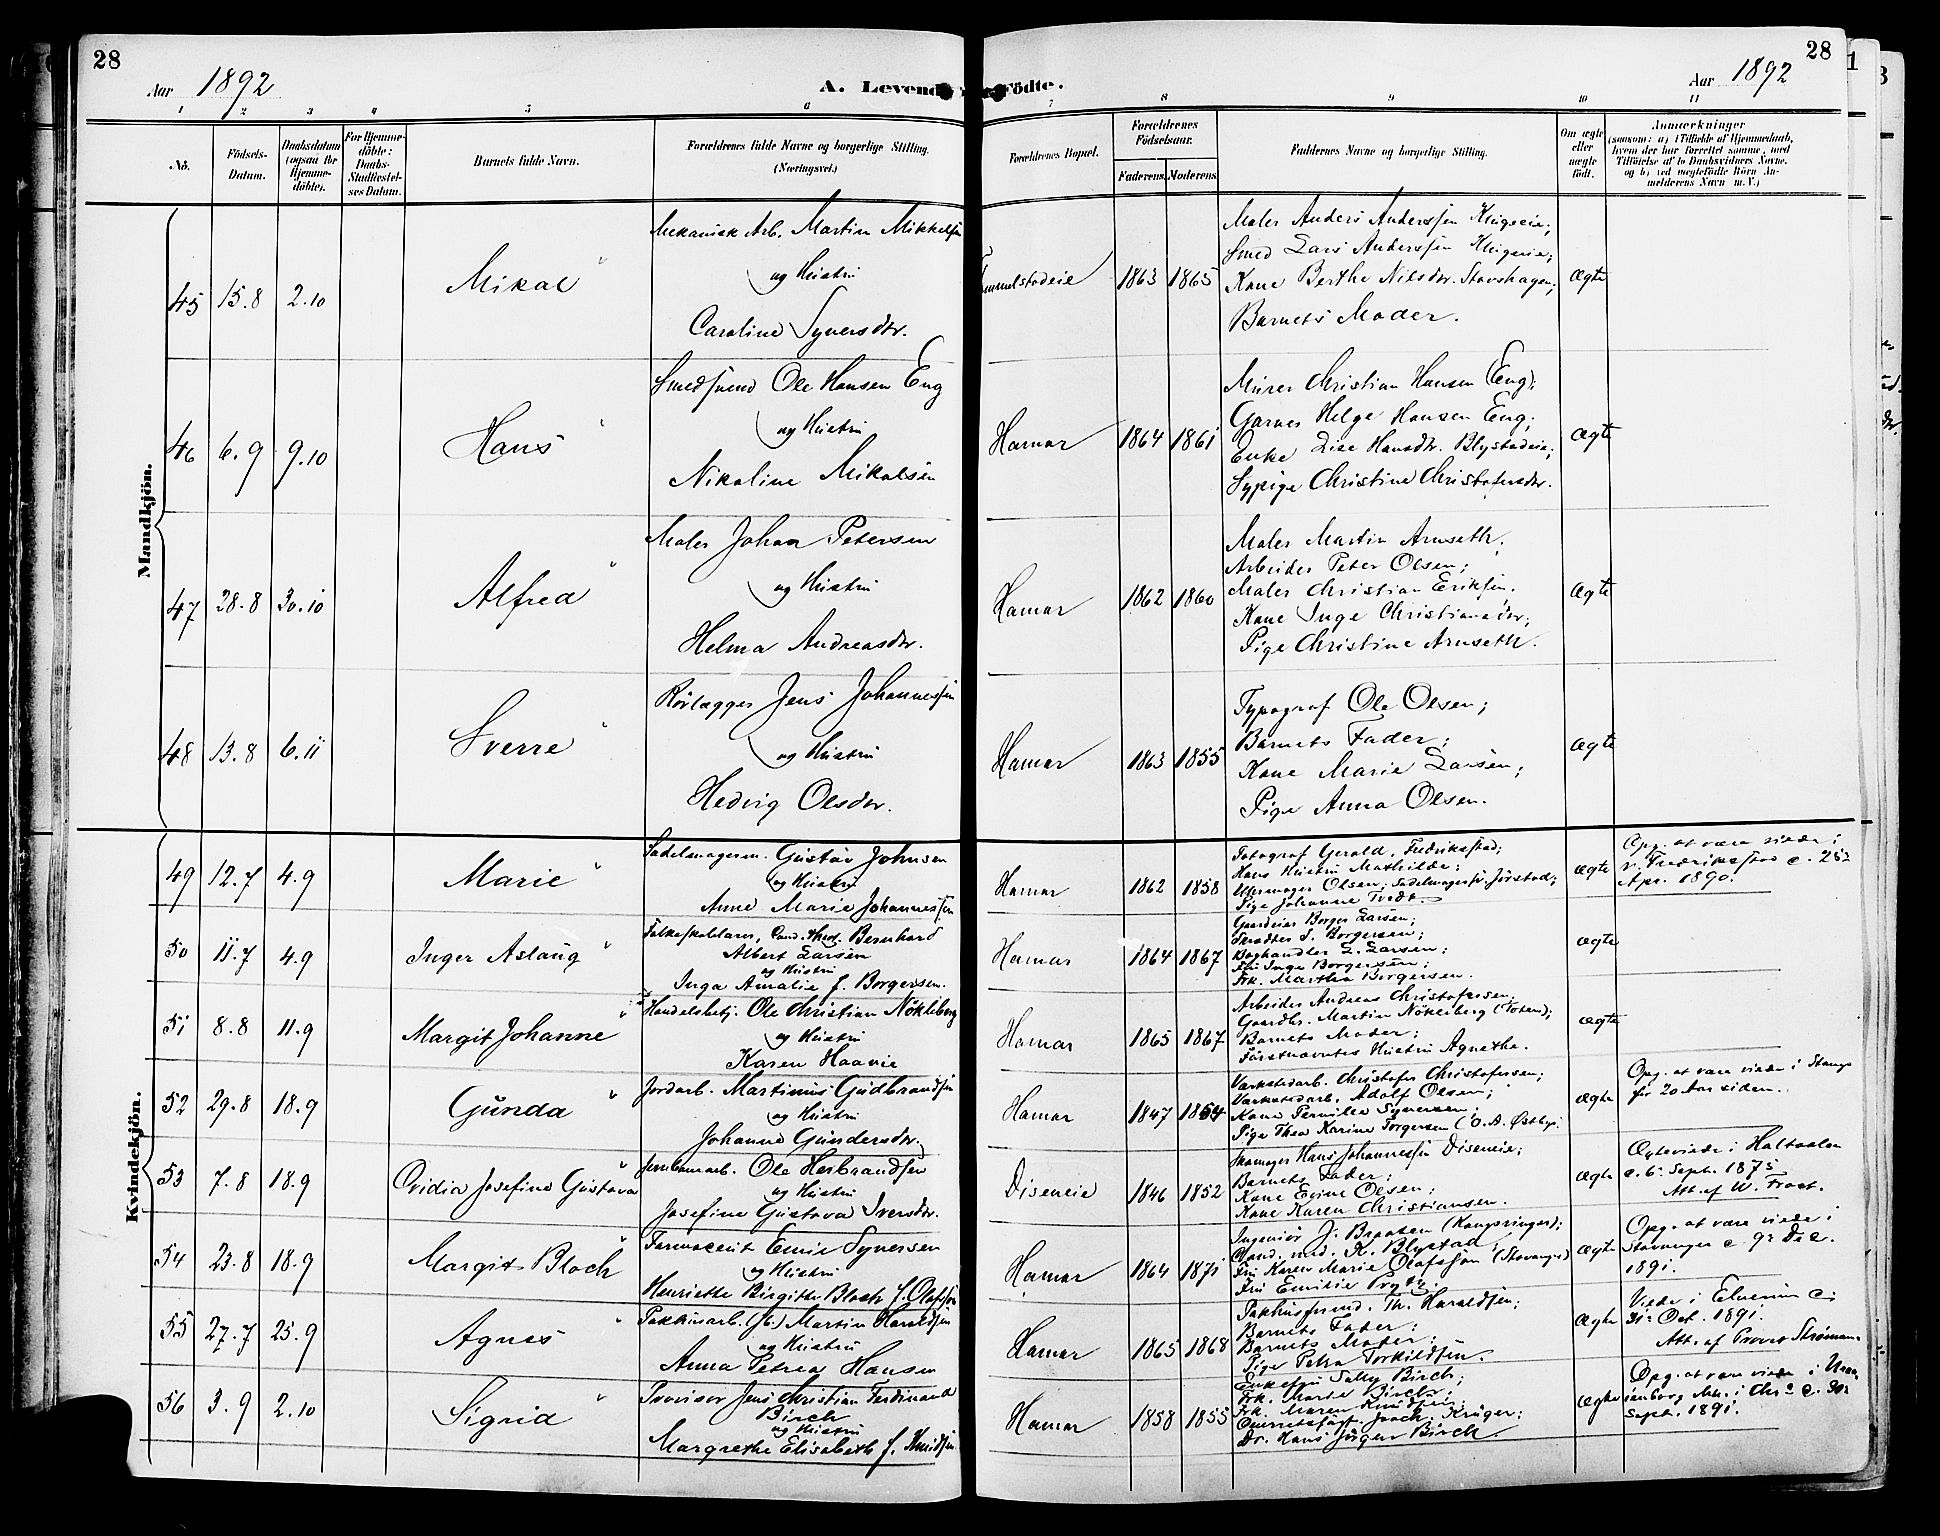 28
Aar 1892
A. Levende
Födte.
Aar 1892
28
1 2 3 4 5 6 7 8 9 10 11
No.
Födsels-Datum.
Daabsdatum (ogsaa for Hjemmedöbte).
For Hjemmedöbte: Daabs-Stadfæstelses Datum.
Barnets fulde Navn.
Forældrenes fulde Navne og borgerlige Stilling. (Næringsvei.)
Forældrenes Bopæl.
Forældrenes Födselsaar.
Faderens. Moderens.
Faddernes Navne og borgerlige Stilling.
Om ægte eller uægte födt.
Anmærkninger
(saasom: a) i Tilfælde af Hjemmedaab, hvem der har forrettet samme, med Tilföielse af to Daabsvidners Navne, og b) ved uægtefödte Börn Anmelderens Navn m. V.)
Mandkjön.
45 15.8 2.10 Mikal
Mekanisk Arb. Martin Mikkelsen
og Hustru
Caroline Syversdtr.
1863 1865
Maler Anders Anderssen Klugeeie;
Smed Lars Anderssen Klugeeie;
Kone Berthe Nilsdtr. Stavshagen;
Barnets Moder.
ægte
46 6.9 9.10 Hans
Smedsvend Ole Hansen Eng
og Hustru
Nikoline Mikalsen
Hamar 1864 1861
Murer Christian Hansen (Eng);
Garver Helge Hansen Eng;
Enke Lise Hansdtr. Blystadeie;
Sypige Christine Christofersdtr.
ægte
47 28.8 30.10 Alfred
Maler Johan Petersen
og Hustru
Helma Andreasdtr.
Hamar 1862 1860
Maler Martin Arnseth;
Arbeider Peter Olsen;
Maler Christian Eriksen;
Kone Inge Christiansdtr;
Pige Christine Arnseth.
ægte
48 13.8 6.11 Sverre
Rörlægger Jens Johannessen
og Hustru
Hedvig Olsdtr.
Hamar 1863 1855
Typograf Ole Olsen;
Barnets Fader;
Kone Marie Larsen;
Pige Anna Olsen.
ægte
Kvindekjön.
49 12.7 4.9 Marie
Sadelmagersv. Gustav Johnsen
og Hustru
Anne Marie Johannessen
Hamar 1862 1858
Fotograf Gerald, Fredrikstad;
Hans Hustru Mathilde;
Uhrmager Olsen; Sadelmagersv. Jörstad;
Pige Johanne Tvedt.
ægte
Opg. at være viede i
v. Fredrikstad c. 25:
Apr. 1890.
50 11.7 4.9 Inger Aslaug
Folkeskolelærer, Cand. theol. Bernhard
Albert Larsen
og Hustru
Inga Amalie f. Borgersen.
Hamar 1864 1867
Gaardeier Borger Larsen;
Skrædder S. Borgersen;
Boghandler L. Larsen;
Fru Inga Borgersen;
Frk. Martha Borgersen.
ægte
51 8.8 11.9 Margit Johanne
Handelsbetj. Ole Christian Nökleberg
og Hustru
Karen Haavie
Hamar 1865 1867
Arbeider Andreas Christofersen;
Gaardbr. Martin Nökleberg (Toten);
Barnets Moder;
Förstnævntes Hustru Agnethe.
ægte
52 29.8 18.9 Gunda
Jordarb. Martinus Gudbrandsen
og Hustru
Johanne Gundersdtr.
Hamar 1847 1854
Værkstedarb. Christofer Christofersen;
Værkstedarb. Adolf Olsen;
Kone Pernille Syversen;
Pige Thea Karine Torgersen
ægte
Opg. at være viede i Stange
for 20 Aar siden.
53 7.8 18.9 Ovidia Josefine Gustava
Jernbanearb. Ole Herbrandsen
og Hustru
Josefine Gustava Iversdtr.
Diseneie 1846 1852
Skomager Hans Johannessen Diseneie;
Barnets Fader;
Kone Eline Olsen;
Kone Karen Christiansen.
ægte
Ægteviede i Haltaalen
c. 6: Sept. 1875
Att. af W. Frost.
54 23.8 18.9 Margit Bloch
Farmaceut Emil Syversen
og Hustru
Henriette Birgitte Bloch f. Olafson
Hamar 1864 1871
Ingeniör J. Braaten (Kongsvinger);
Cand. med. K. Blystad;
Fru Karen Marie Olafson (Stavanger)
Fru Emilie Prytz.
ægte
Opg. at være viede i
Stavanger c. 9: Dec.
1891.
55 27.7 25.9 Agnes
Pakhusarb. Martin Haraldsen
og Hustru
Anna Petrea Hansen
Hamar 1865 1868
Pakhusformd. Th. Haraldsen;
Barnets Fader;
Barnets Moder;
Pige Petra Torkildsen.
ægte
Viede i Elverum c.
31: Oct. 1891.
Att. af Provst Ström
56 3.9 2.10 Sigrid
Provisor Jens Christian Ferdinand
Birch
og Hustru
Margrethe Elisabeth f. Knudsen
Hamar 1858 1855
Enkefru Sally Birch;
Frk. Marie Birch;
Frk. Maren Knudsen;
Joach. Krüger;
Dr. Hans Jörgen Birch.
ægte
Opg. at være viede i Uranienborg
Sept. 1891.